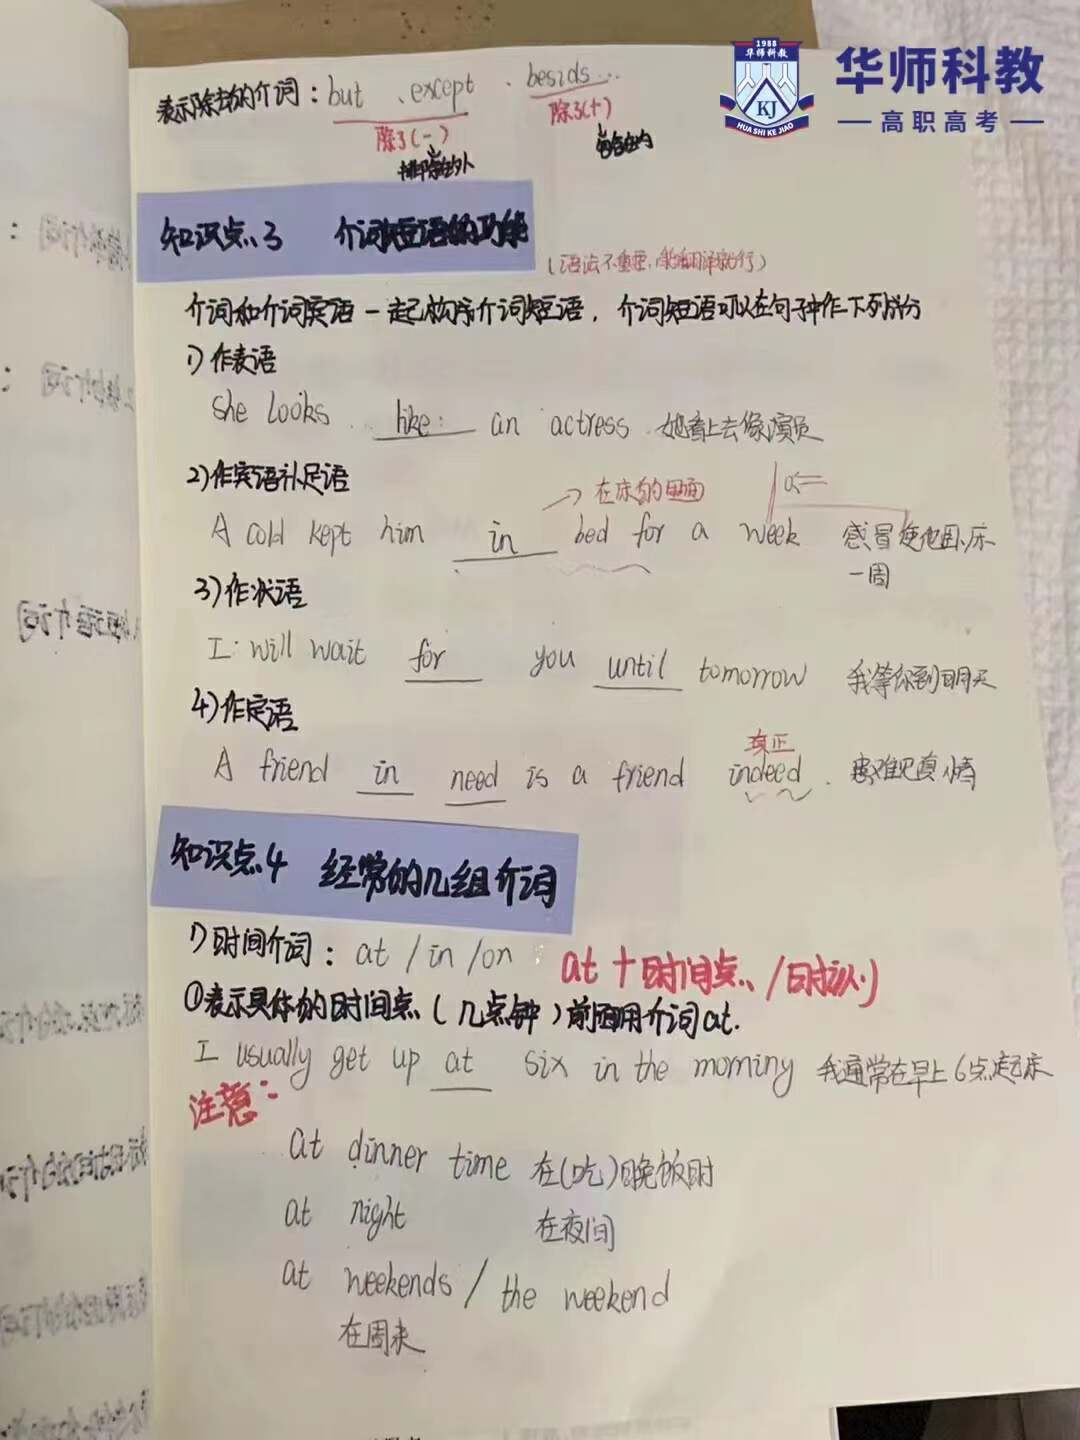 1988
华师科教
KJ
HUA SHI KE JIAO
华师科教
高职高考
表示除去的介词：but 、except 、besids...
除了(-) 除了(+)
排除在外 包含在内
知识点3 介词短语的功能
(语法不重要，能翻译就行)
介词和介词宾语一起构成介词短语，介词短语可以在句子中作下列成分
1) 作表语
She looks like an actress 她看上去像演员
2) 作宾语补足语
→ 在床的里面
A cold kept him in bed for a week 感冒使他卧床
一周
3) 作状语
I will wait for you until tomorrow 我等你到明天
4) 作定语
真正
A friend in need is a friend indeed . 患难见真情
知识点4 经常的几组介词
1) 时间介词：at / in / on at + 时间点 /时刻
①表示具体的时间点(几点钟)前面用介词at.
I usually get up at six in the morning 我通常在早上6点起床
注意：
at dinner time 在(吃)晚饭时
at night 在夜间
at weekends / the weekend
在周末